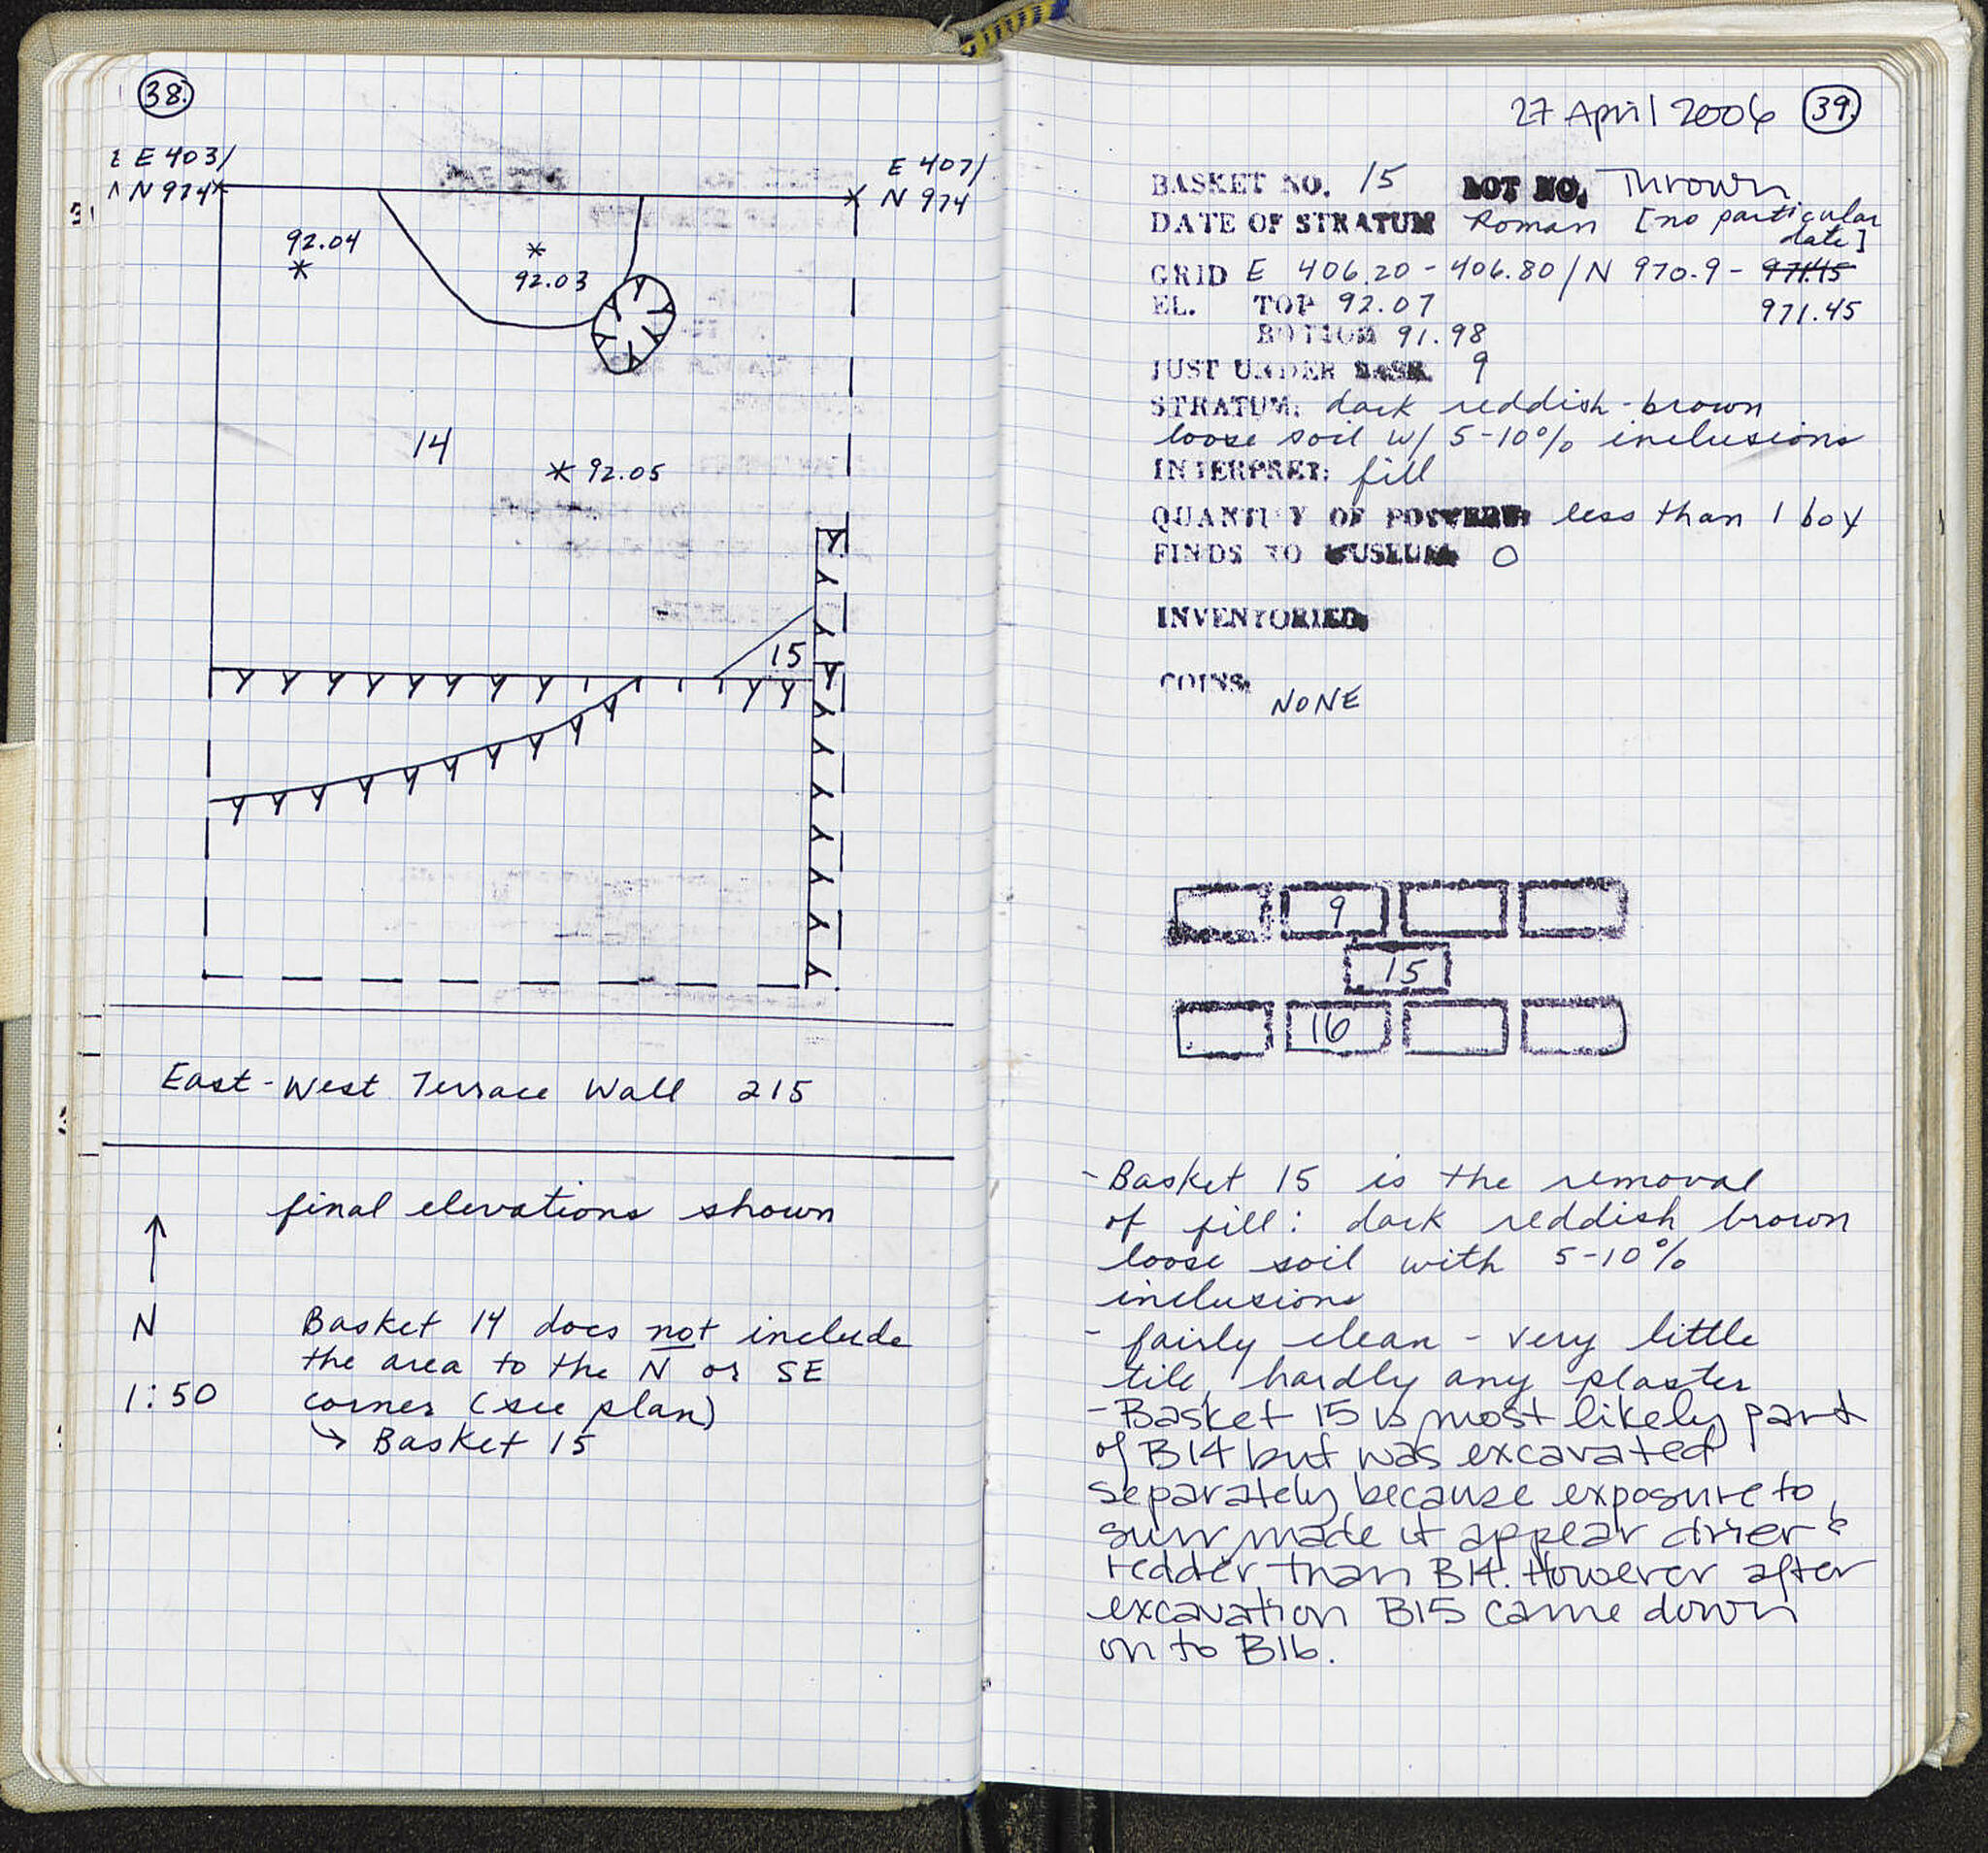 38.
E 403/
N 974
E 407/
N 974
92.04
92.03
14
92.05
15
East-West Terrace Wall 215
final elevations shown
N
1:50
Basket 14 does not include
the area to the N or SE
corner (see plan)
↳ Basket 15
27 April 2006 39.
BASKET NO. 15 LOT NO. Thrown
DATE OF STRATUM Roman [no particular
date]
GRID E 406.20-406.80/N 970.9- 971.45
971.45
EL. TOP 92.07
BOTTOM 91.98
JUST UNDER BASK. 9
STRATUM: dark reddish-brown
loose soil w/ 5-10% inclusions
INTERPRET: fill
QUANTITY OF POTTERY: less than 1 box
FINDS TO MUSEUM 0
INVENTORIED
COINS:
NONE
9
15
16
-Basket 15 is the removal
of fill: dark reddish brown
loose soil with 5-10%
inclusions
- fairly clean - very little
tile, hardly any plaster
-Basket 15 is most likely part
of B14 but was excavated
separately because exposure to
sun made it appear drier &
redder than B14. However after
excavation B15 came down
on to B16.